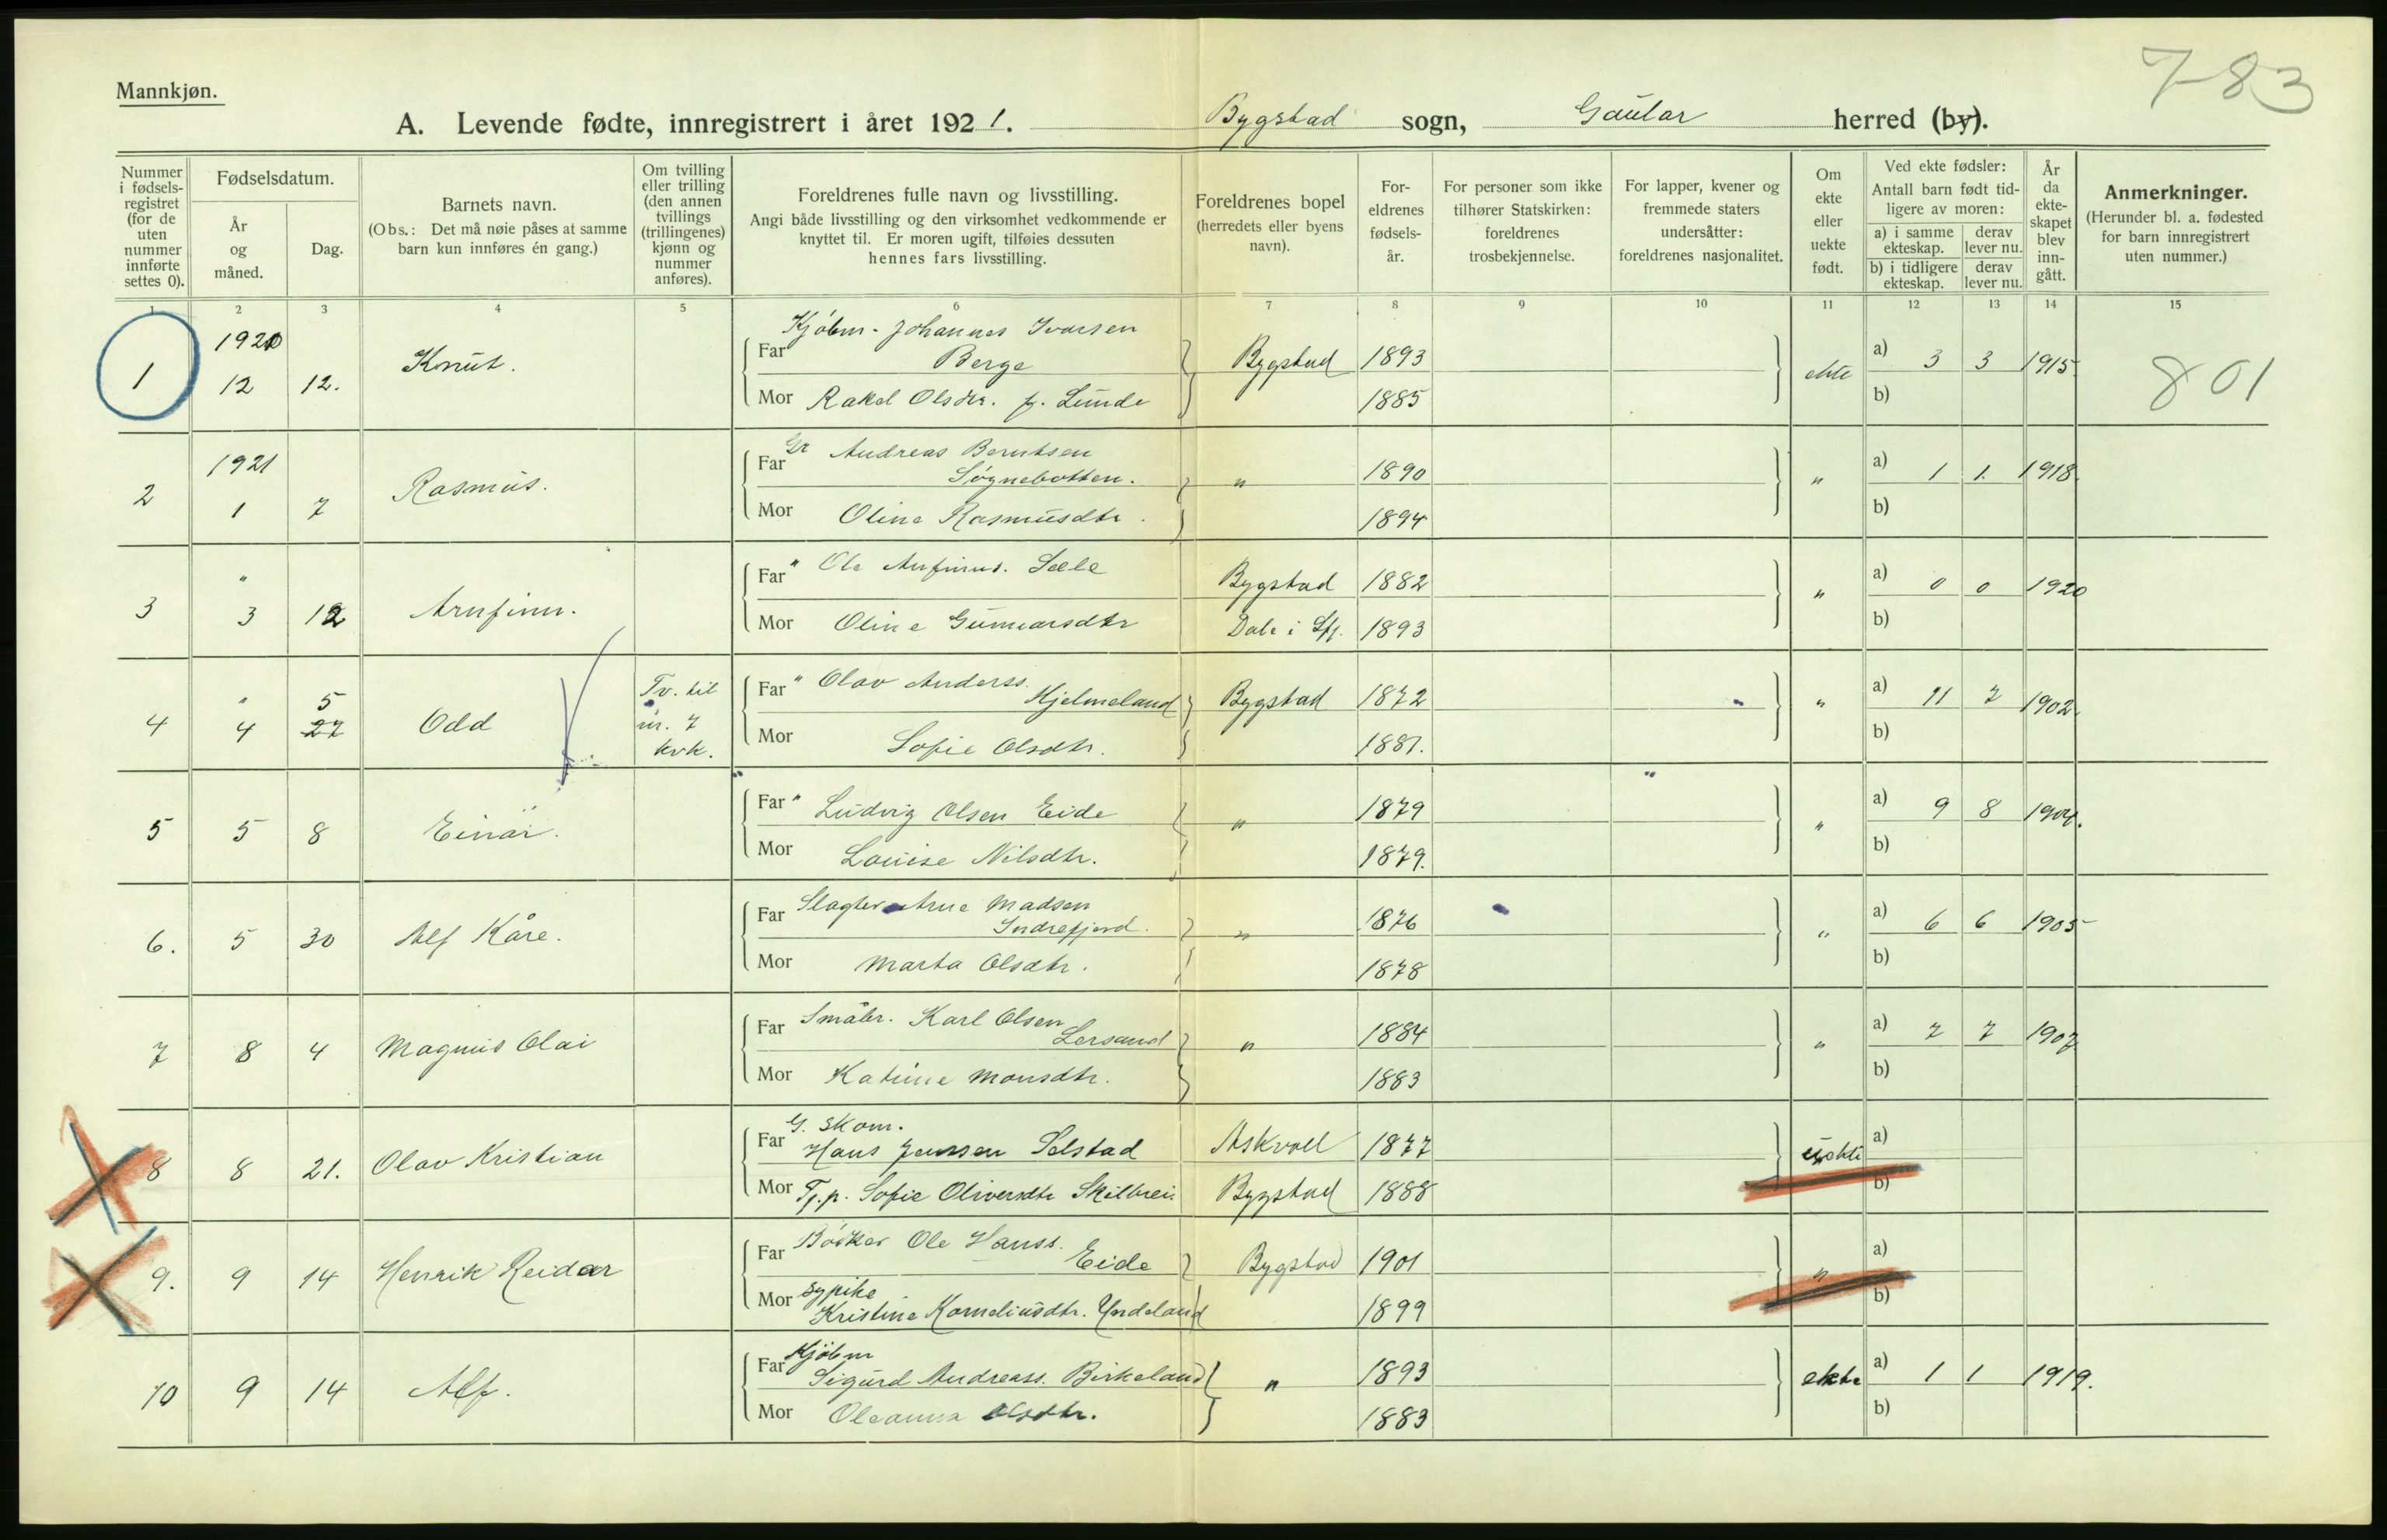 7-83
Mannkjøn.
A. Levende fødte, innregistrert i året 1921. Bygstad sogn, Gaular herred (by).
Nummer i fødsels- registret (for de uten nummer innførte settes 0).
Fødselsdatum.
År og måned.
Dag.
Barnets navn.
(Obs.: Det må nøie påses at samme barn kun innføres én gang.)
Om tvilling eller trilling (den annen tvillings (trillingenes) kjønn og nummer anføres).
Foreldrenes fulle navn og livsstilling.
Angi både livsstilling og den virksomhet vedkommende er knyttet til. Er moren ugift, tilføies dessuten hennes fars livsstilling.
Foreldrenes bopel (herredets eller byens navn).
For- eldrenes fødsels- år.
For personer som ikke tilhører Statskirken: foreldrenes trosbekjennelse.
For lapper, kvener og fremmede staters undersåtter: foreldrenes nasjonalitet.
Om ekte eller uekte født.
Ved ekte fødsler:
Antall barn født tid- ligere av moren:
a) i samme ekteskap.
derav lever nu.
b) i tidligere ekteskap.
derav lever nu.
År da ekte- skapet blev inn- gått.
Anmerkninger.
(Herunder bl. a. fødested for barn innregistrert uten nummer.)
1 2 3 4 5 6 7 8 9 10 11 12 13 14 15
1 1920 12 12. Knut.
Far Kjøbm. Johannes Ivarsen Berge Bygstad 1893 ekte a) 3 3 1915 801
Mor Rakel Olsdtr. f. Lunde 1885 b)
2 1921 1 7 Rasmus.
Far Gr Andreas Berntsen Søgnebotten. " 1890 " a) 1 1. 1918.
Mor Oline Rasmusdtr. 1894 b)
3 " 3 12 Arnfinn.
Far " Ole Anfinns. Sæle Bygstad 1882 " a) 0 0 1920
Mor Oline Gunnarsdtr Dale i Sfj. 1893 b)
4 " 4 5 27 Odd Tv. til nr. 7 kvk.
Far " Olav Anderss. Hjelmeland Bygstad 1872 " a) 11 7 1902.
Mor Sofie Olsdtr. 1881. b)
5 5 8 Einar.
Far " Ludvig Olsen Eide " 1879 " a) 9 8 1904.
Mor Louise Nilsdtr. 1879. b)
6. 5 30 Alf Kåre.
Far Slagter Arne Madsen Indrefjord. " 1876 " a) 6 6 1905
Mor Marta Olsdtr. 1878 b)
7 8 4 Magnus Olai
Far Småbr. Karl Olsen Lersand " 1884 " a) 7 7 1907
Mor Katrine Monsdtr. 1883 b)
8 8 21. Olav Kristian
Far G. Skom. Hans Jenssen Selstad Askvoll 1877 uekte a)
Mor Tj.p. Sofie Oliversdtr Skilbrei Bygstad 1888 b)
9. 9 14 Henrik Reidar
Far Bødker Ole Hanss. Eide Bygstad 1901 " a)
Mor sypike Kristine Korneliusdtr. Yndeland 1899 b)
10 9 14 Alf.
Far Kjøbm Sigurd Andreass. Birkeland " 1893 ekte a) 1 1 1919.
Mor Oleanna Olsdtr. 1883 b)